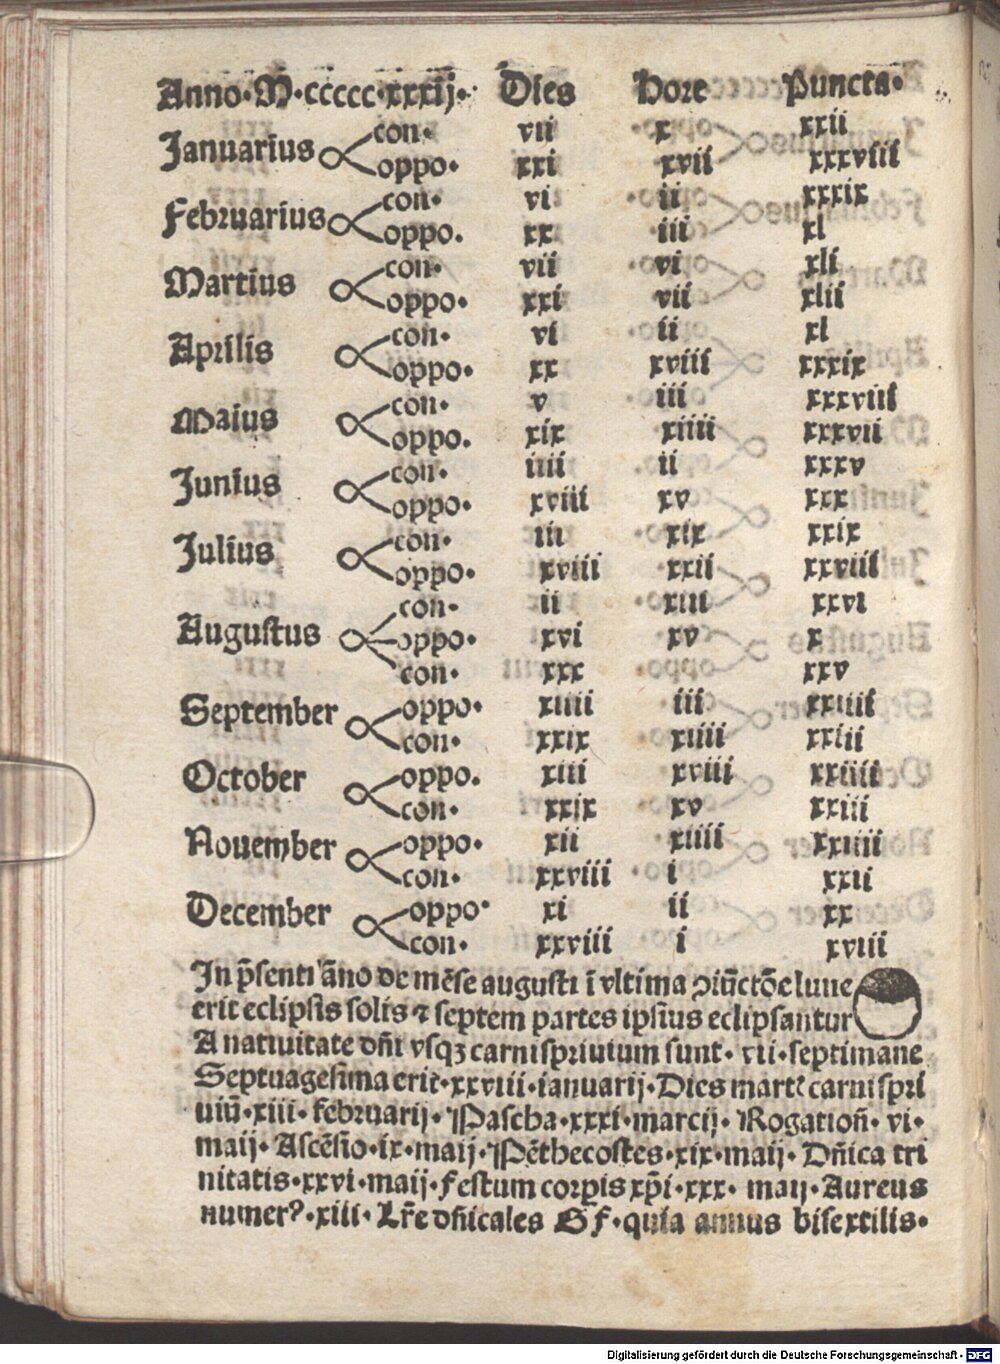 Anno·M·ccccc·xxxij· Dies Hore Puncta·
Januarius con· vii x xxii
oppo· xxi xvii xxxviii
Februarius con· vi ii xxxix
oppo. xx iii xl
Martius con· vii vi xli
oppo· xxi vii xlii
Aprilis con· vi ii xl
oppo· xx xviii xxxix
Maius con· v iii xxxviii
oppo. xix xiiii xxxvii
Junius con· iiii ii xxxv
oppo· xviii xv xxx
Julius con· iii xix xxix
oppo· xviii xxii xxviii
Augustus con· ii xiii xxvi
oppo· xvi xv x
con· xxx xxv
September oppo· xiiii iii xxiiii
con· xxix xiiii xxiii
October oppo. xiii xviii xxiiii
con· xxix xv xxiii
Nouember oppo· xii xiiii xxiiii
con· xxviii i xxii
December oppo· xi ii xx
con· xxviii i xviii
In p̄senti āno de mēse augusti ī vltima ↄiūctōe lune
erit eclipsis solis ⁊ septem partes ipsius eclipsantur
A natiuitate dn̄i vsqꝫ carnispriuium sunt· vii·septimane
Septuagesima erit·xxviii·ianuarij·Dies martꝭ carnispri
uiū·xiii·februarij·Pascha·xxxi·marcij·Rogation̄·vi·
maij·Ascēsio·ix·maij·Pēthecostes·xix·maij·Dn̄ica tri
nitatis·xxvi·maij·festum corpis xp̄i·xxx·maij·Aureus
numerꝰ·xiii·Lr̄e dn̄icales G f·quia annus bisextilis·
Digitalisierung gefördert durch die Deutsche Forschungsgemeinschaft - DFG